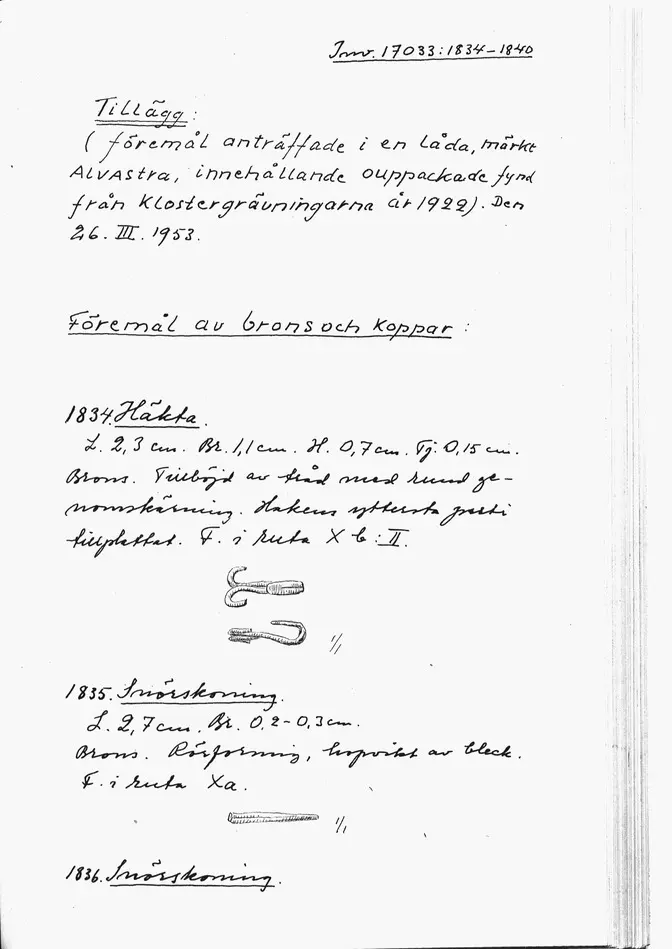 Inv. 17033:1834-1840
Tillägg:
(föremål anträffade i en låda, märkt
Alvastra, innehållande ouppackade fynd
från klostergrävningarna år 1922). Den
26. III. 1953.
Föremål av brons och koppar:
1834. Häkta.
L. 2,3 cm. Br. 1,1 cm. H. 0,7 cm. Tj. 0,15 cm.
Brons. Tillböjd av tråd med rund ge-
nomskärning. Hakens yttersta parti
tillplattat. F. i ruta X b:II.
1/1
1835. Snörskoning.
L. 2,7 cm. Br. 0,2-0,3 cm.
Brons. Rörformig, hopvikt av bleck.
F. i ruta Xa.
1/1
1836. Snörskoning.